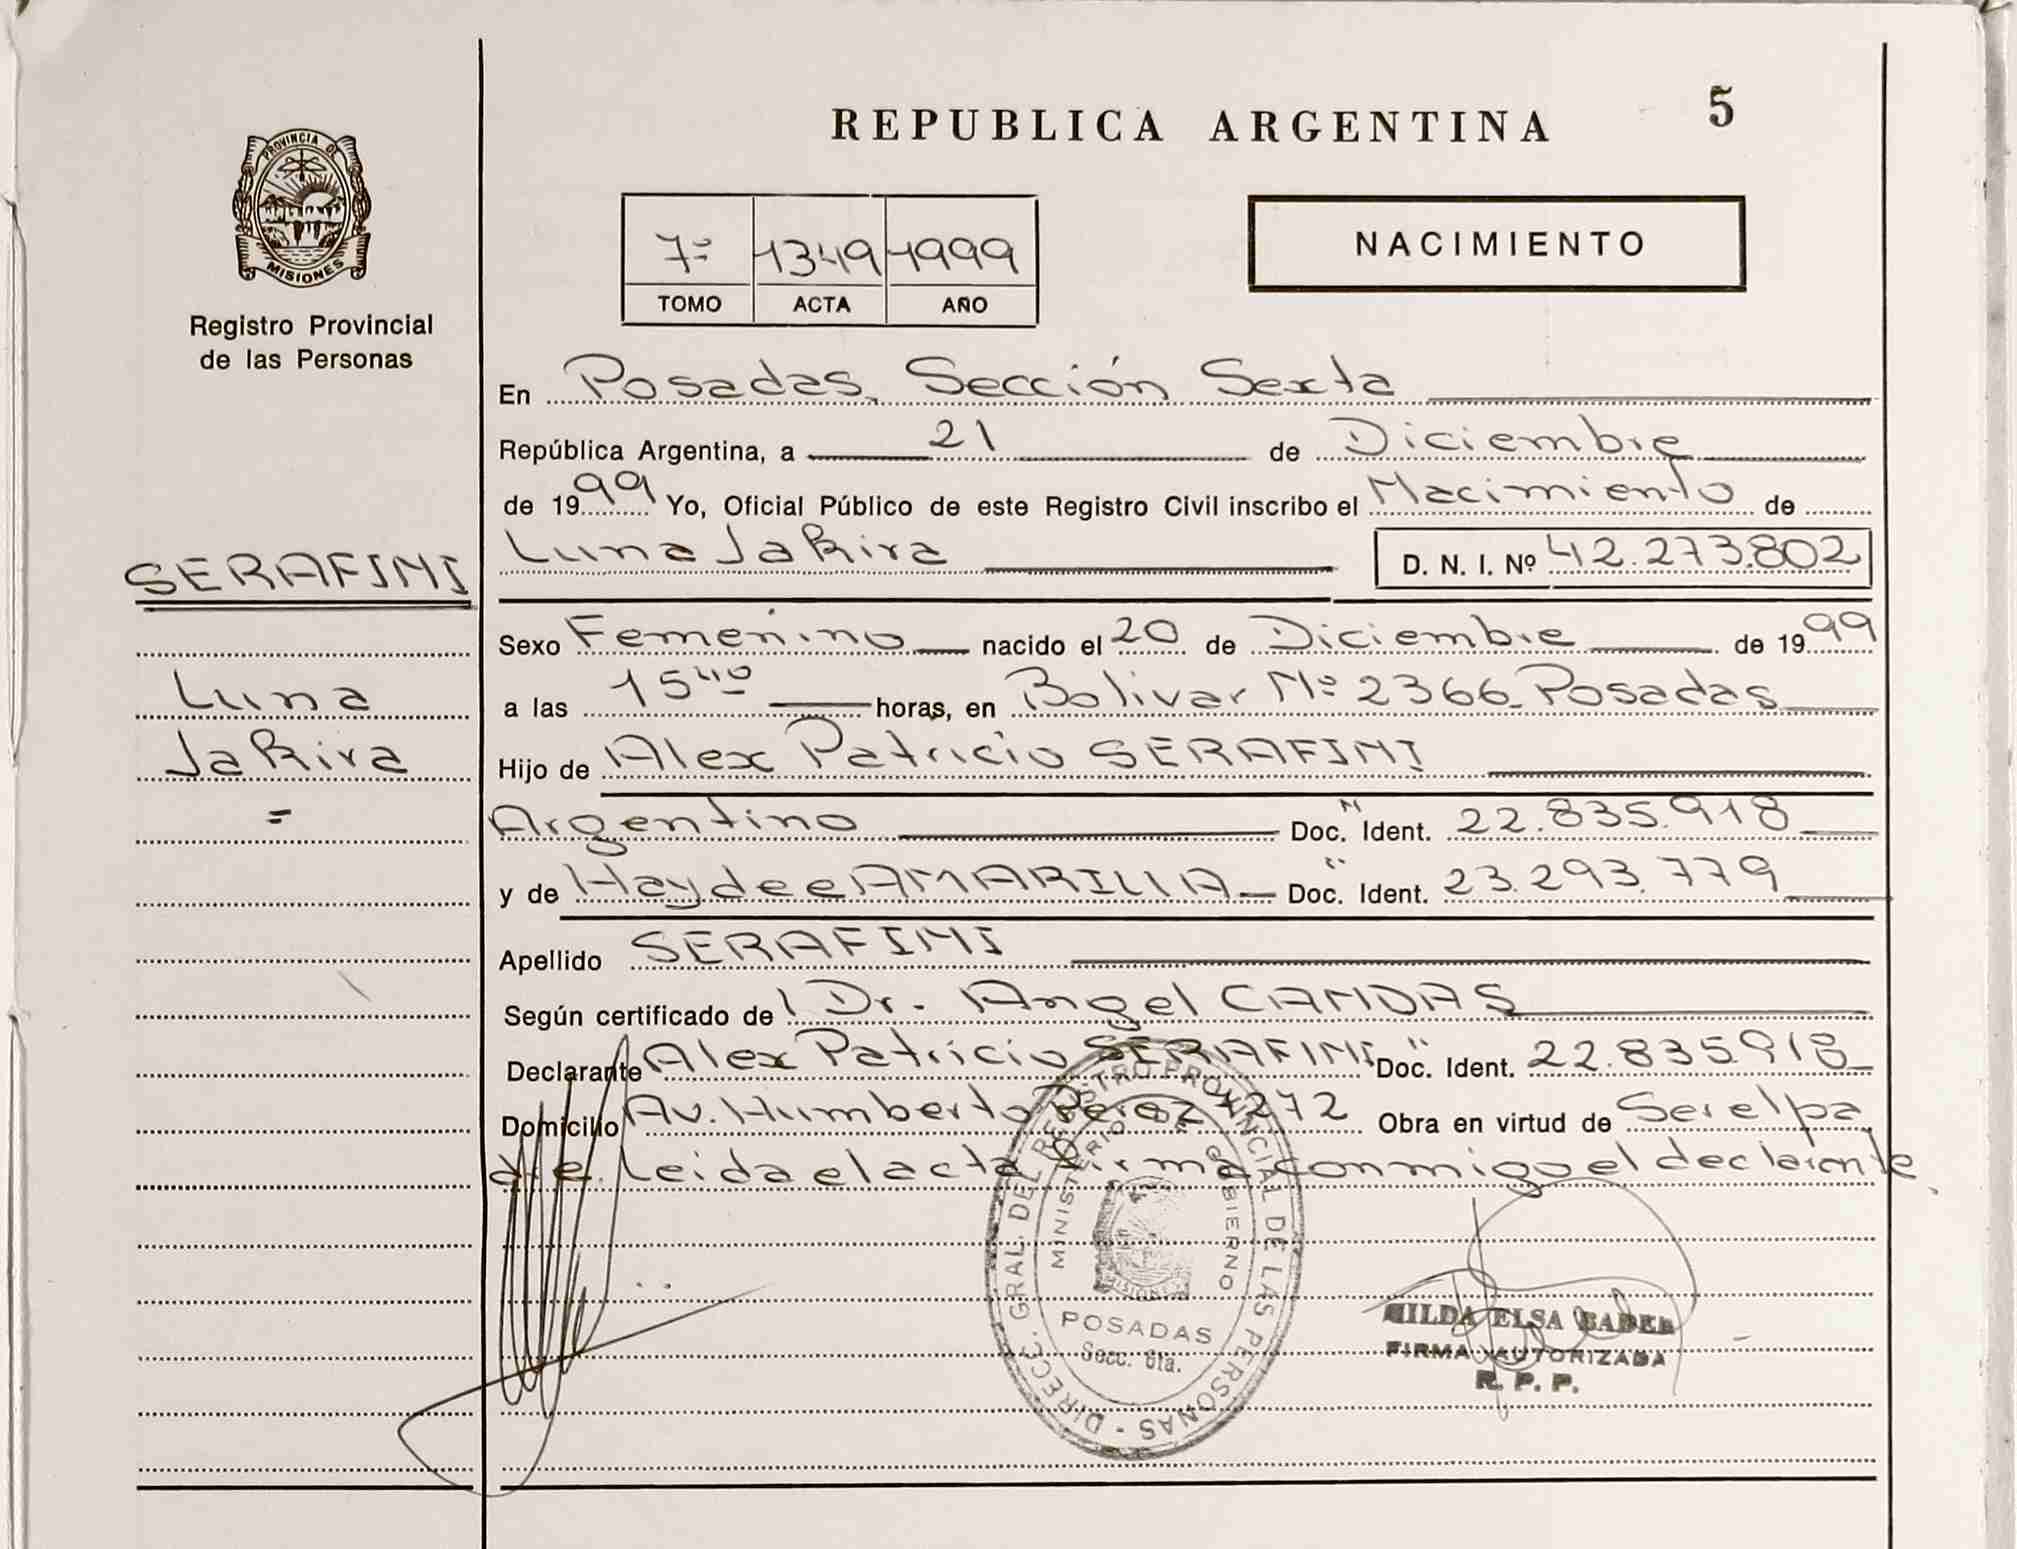 REPUBLICA ARGENTINA
5
PROVINCIA DE
MISIONES
Registro Provincial
de las Personas
7º 1349 1999
TOMO ACTA AÑO
NACIMIENTO
En Posadas, Sección Sexta
República Argentina, a 21 de Diciembre
de 1999 Yo, Oficial Público de este Registro Civil inscribo el Nacimiento de
Luna Jakira D. N. I. Nº 42.273.802
SERAFINI
Luna
Jakira
=
Sexo Femenino nacido el 20 de Diciembre de 1999
a las 15 40 horas, en Bolivar Nº 2366 Posadas
Hijo de Alex Patricio SERAFINI
Argentino Doc. N Ident. 22.835.918
y de Haydee AMARILLA Doc. " Ident. 23.293.779
Apellido SERAFINI
Según certificado de Dr. Angel CANDAS
Declarante Alex Patricio SERAFINI Doc. " Ident. 22.835.918
Domicilio Av. Humberto Perez Obra en virtud de Ser el pa
dre. Leida el acta firma conmigo el declarante.
DIRECC. GRAL. DEL REGISTRO PROVINCIAL DE LAS PERSONAS -
MINISTERIO DE GOBIERNO
MISIONES
POSADAS
Secc. 6ta.
HILDA ELSA BADER
FIRMA AUTORIZADA
R. P. P.